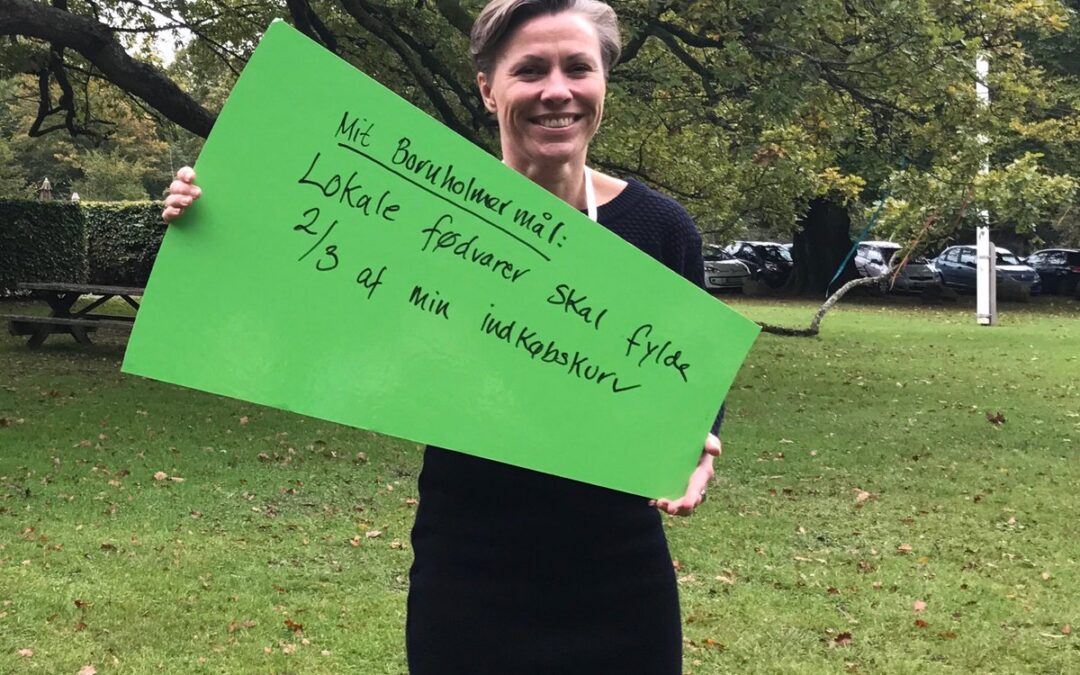 Mit Bornholmermål:
Lokale fødvarer skal fylde
2/3 af min indkøbskurv